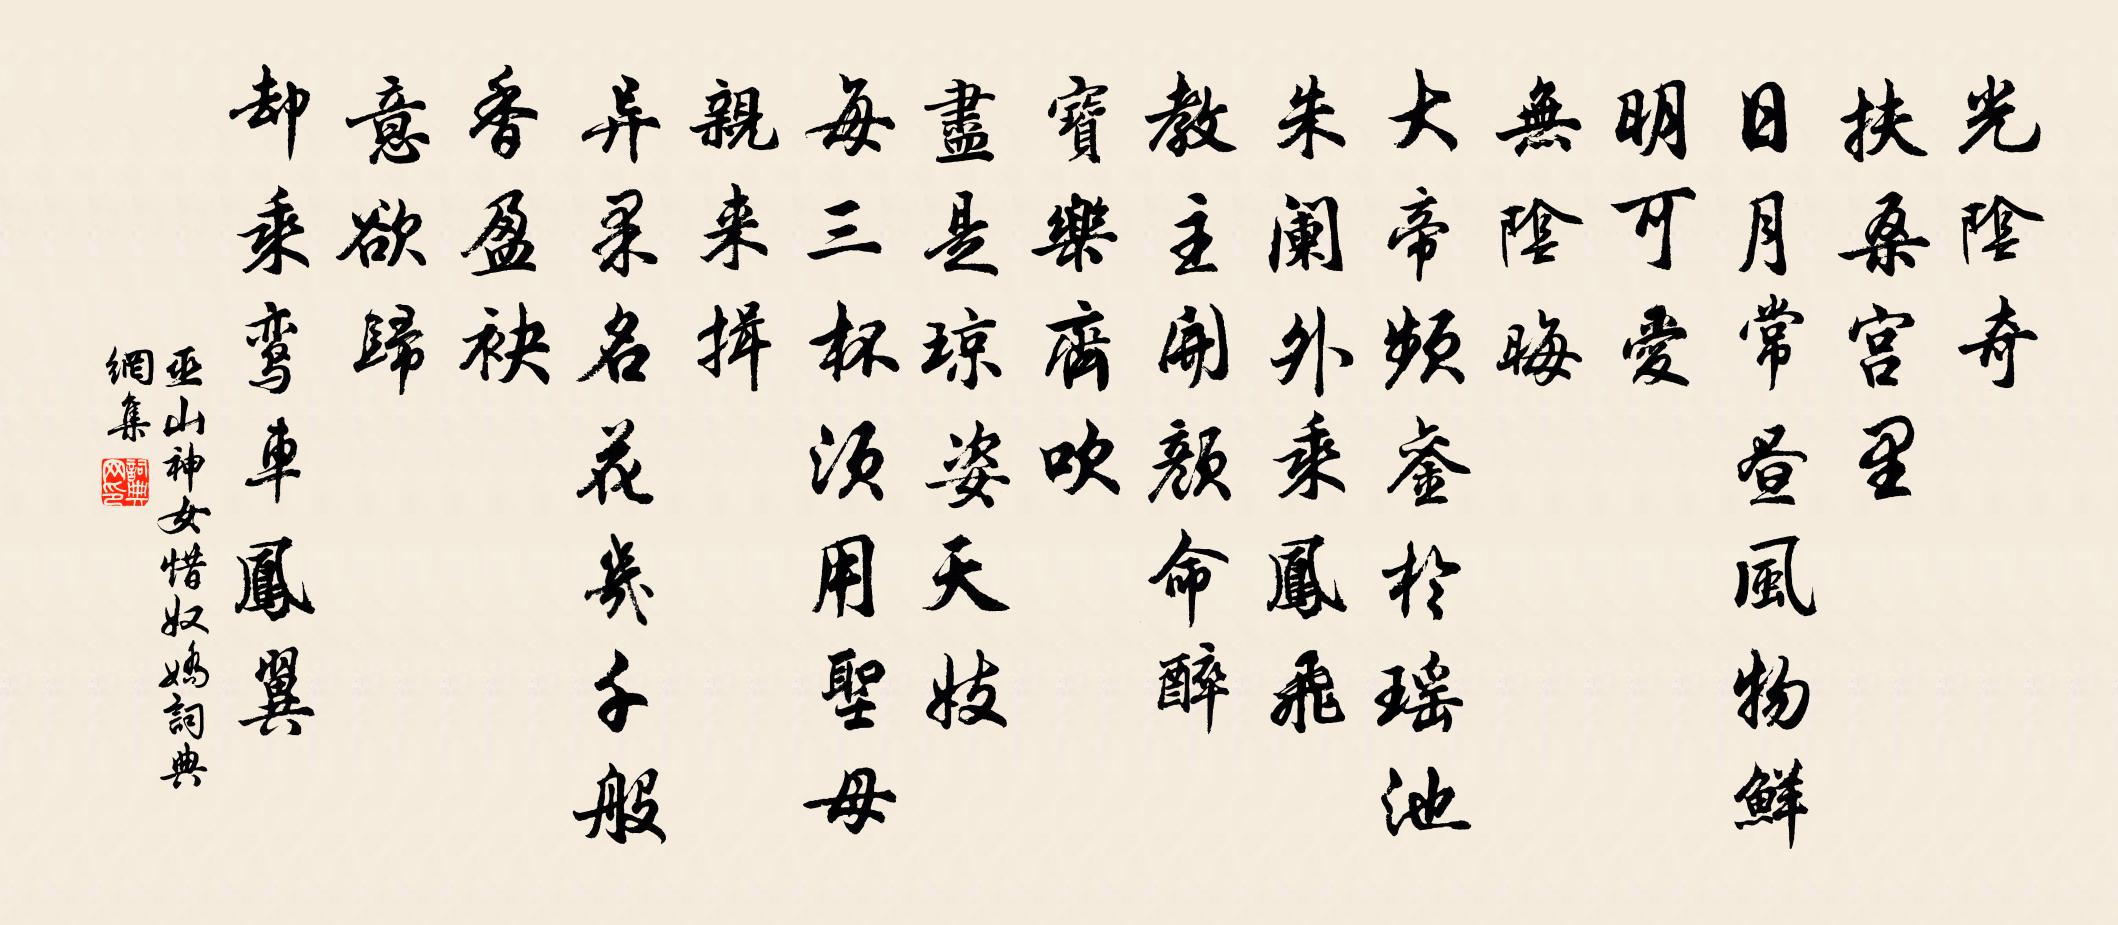 光陰奇
扶桑宫里
日月常昼風物鮮
明可愛
無陰晦
大帝頻鉴於瑶池
朱阑外乘鳳飛
教主開顔命醉
寶樂齊吹
盡是琼姿天妓
每三杯須用聖母
親来揖
异果名花幾千般
香盈袂
意欲歸
却乘鸾車鳳翼
巫山神女惜奴嬌詞典
網集
詞典
网印